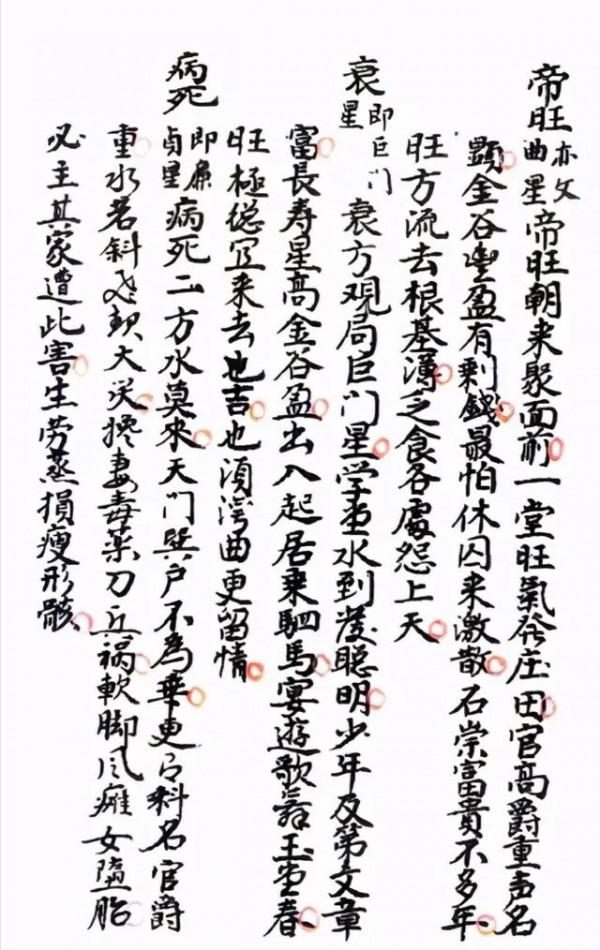 帝旺亦文曲星帝旺朝来聚面前一堂旺氣發庄田官高爵重声名
顕金谷豐盈有剩錢最怕休囚来激散石崇富貴不多年
旺方流去根基薄乏食各處怨上天
衰即巨門星衰方观局巨门星学堂水到發聪明少年及第文章
富長寿星高金谷盈出入起居乘駟馬宴遊歌舞玉堂春
旺極總宜来去也吉也須湾曲更留情
病死即廉貞星病死二方水莫来天门與户不為乖更科名官爵
重水若斜飞大災妻毒药刀兵禍軟脚风癱女墮胎
必主其家遭此害生劳蒸損瘦形骸